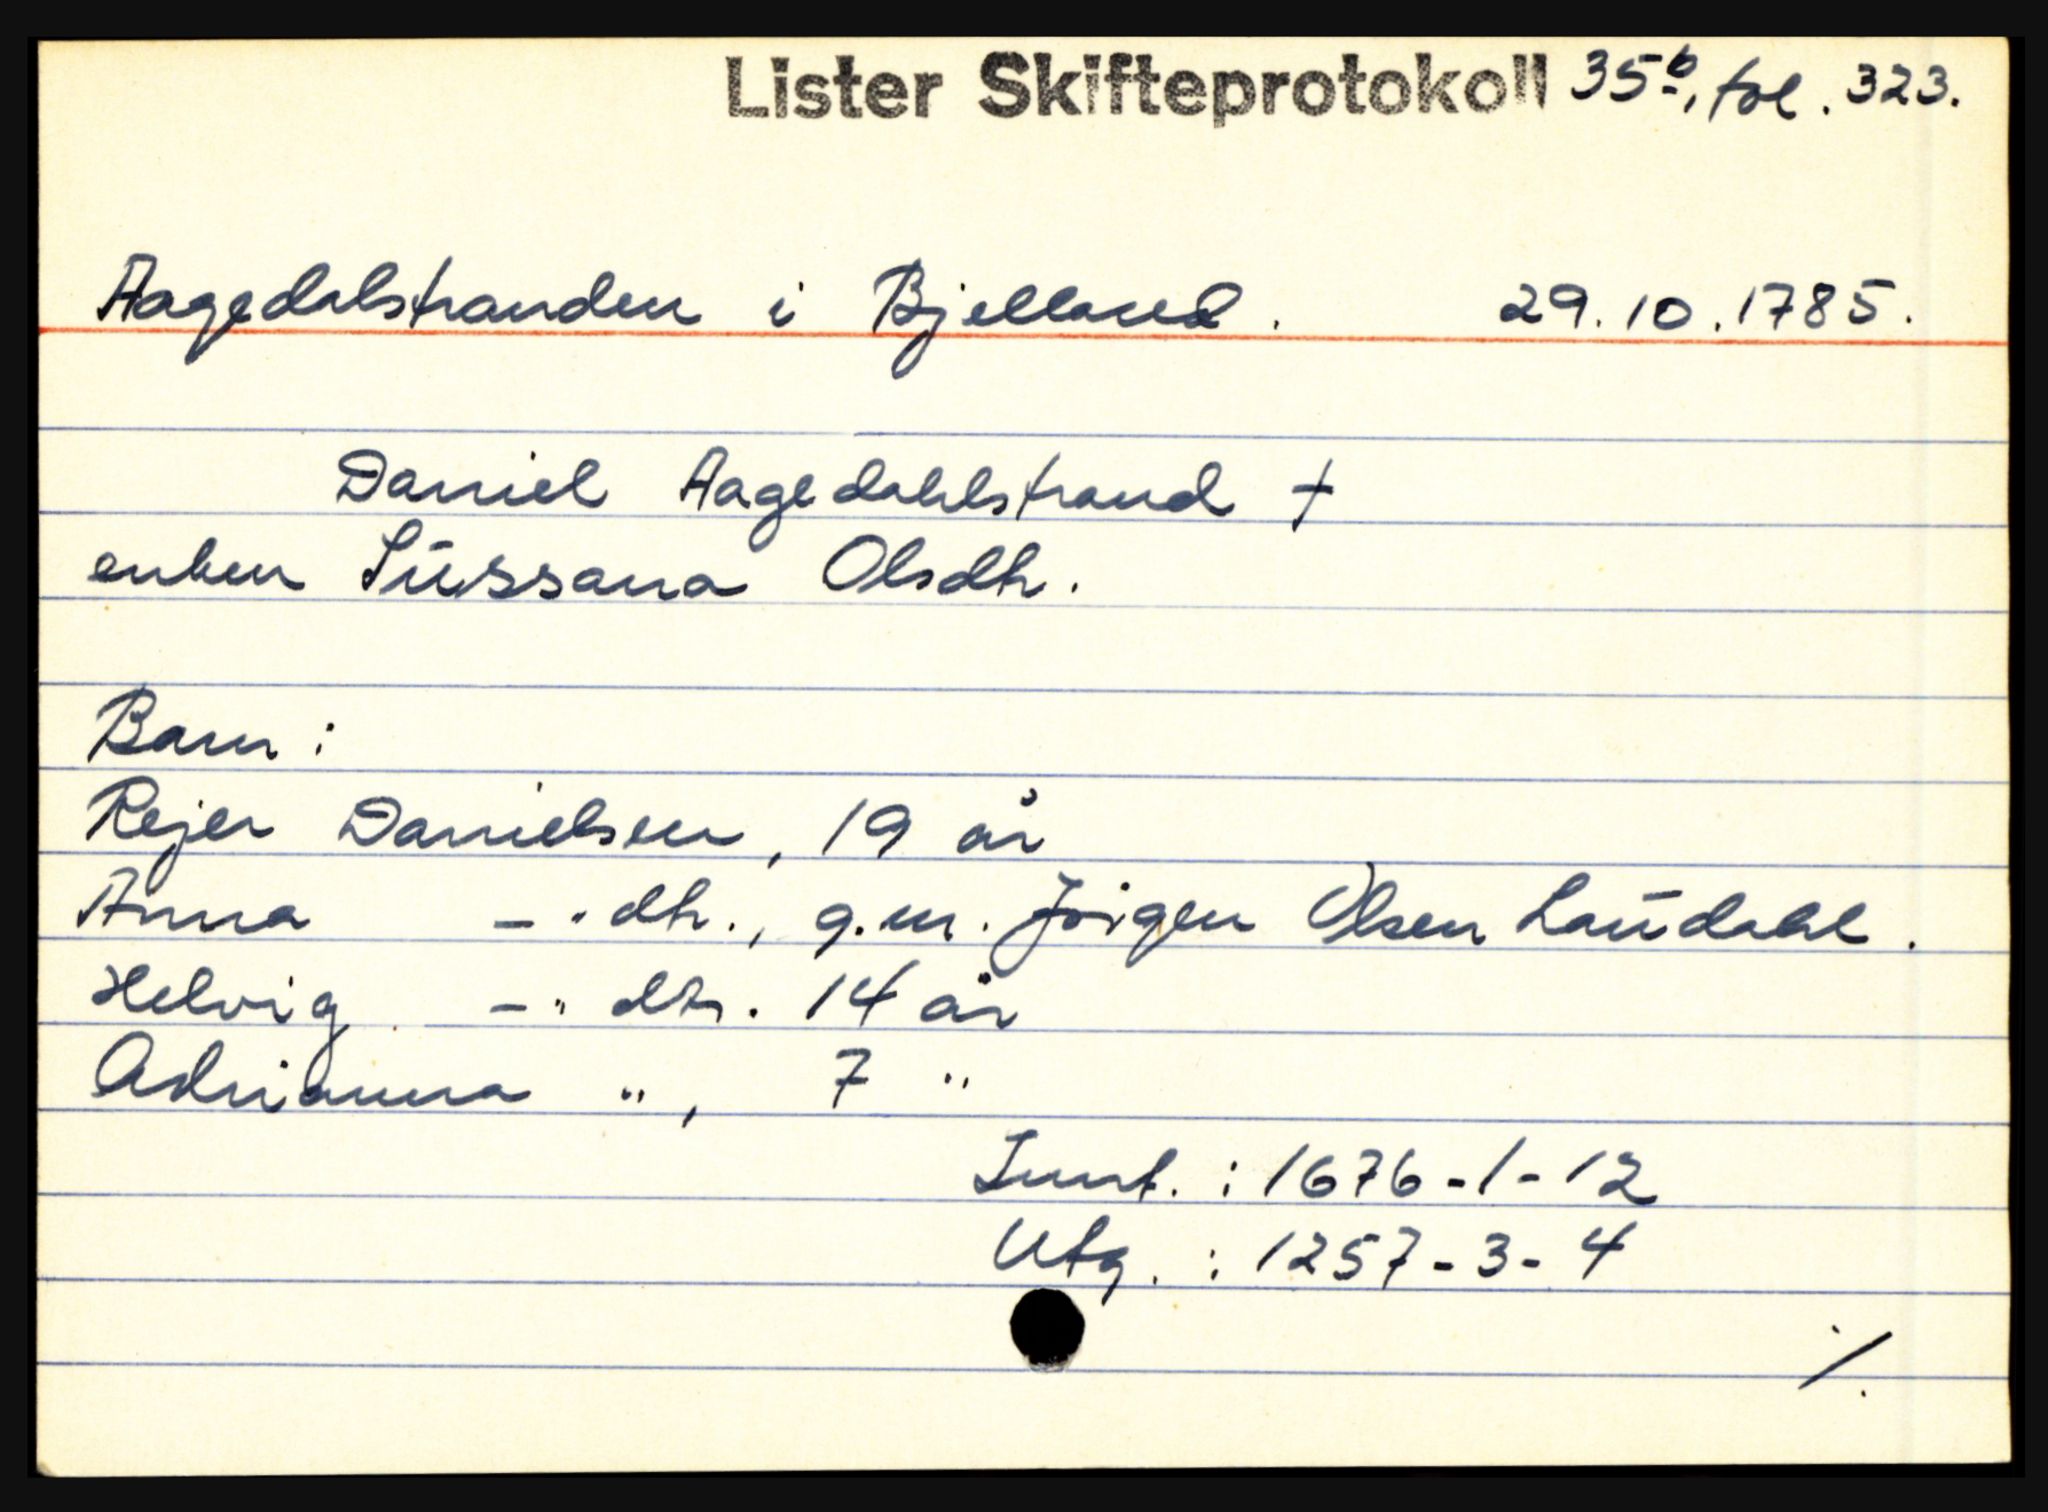 Lister Skifteprotokoll 35b, fol. 323.
Aagedalstranden i Bjelland. 29.10.1785.
Daniel Aagedahlstrand †
enken Sūssana Olsdtr.
Barn:
Rejer Danielsen, 19 år
Anna -"- dtr., g.m. Jørgen Olsen Laūdahl.
Helvig -"- dtr. 14 år
Adrianna ", 7 "
Innt. : 1676-1-12
Utg. : 1257-3-4
./.